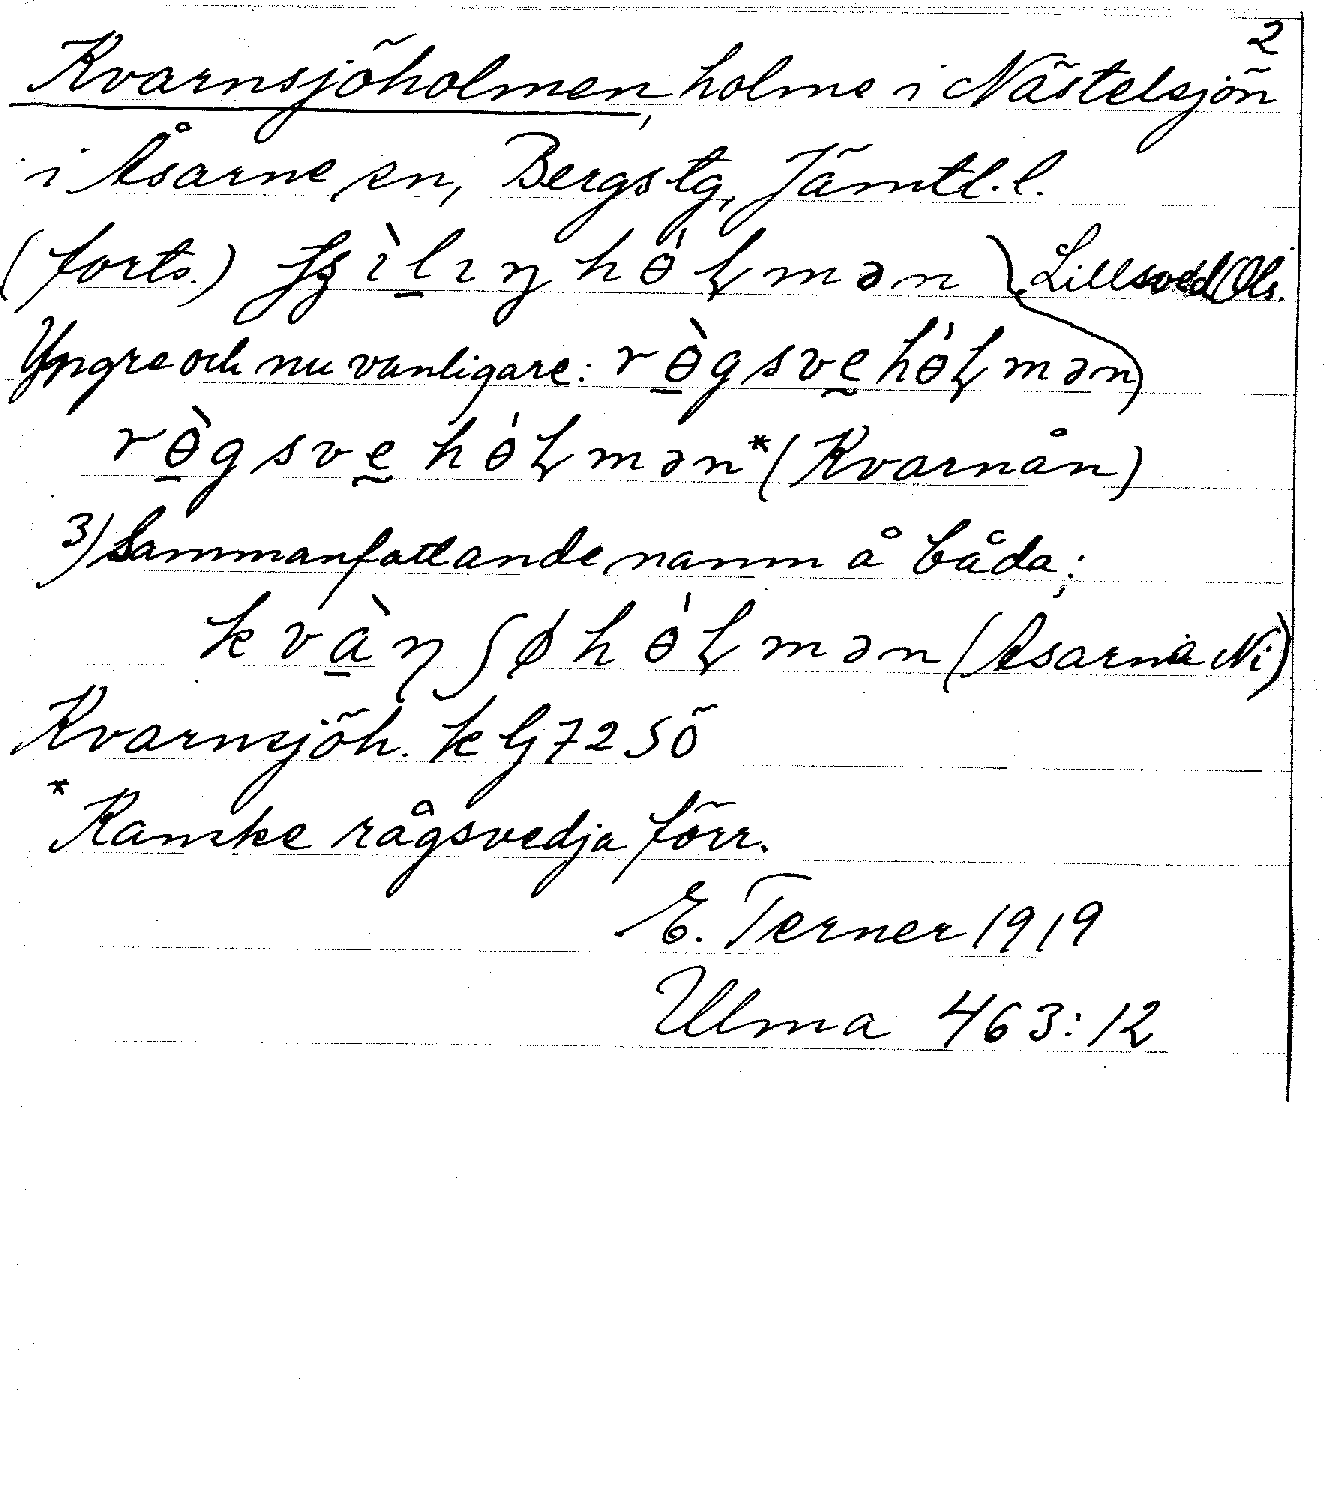 2
Kvarnsjöholmen, holme i Nästelsjön
i Åsarne sn, Bergs tg, Jämtl. l.
(forts.) hɵ́ɽmən } Lillsved Ols.
Yngre och nu vanligare: rɵ̀gsvehɵ́ɽmən)
rɵ̀gsve hɵ́ɽmən* (Kvarnån)
3) Sammanfattande namn å båda:
kvàɳʃøhɵ́ɽmən (Åsarna Ni)
Kvarnsjöh. k G 72 SÖ
* Kanske rågsvedja förr.
E. Terner 1919
Ulma 463:12